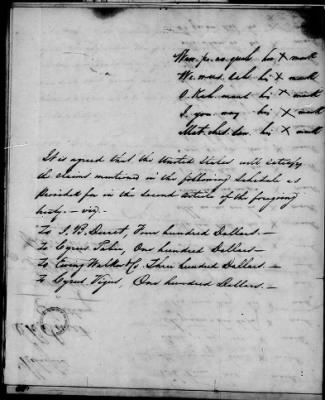 his X mark
his X mark
O. Kah. mause his X mark
I. you way his X mark
Mat. ches. saw. his X mark
It is agreed that the United States will satisfy
the claims mentioned in the following schedule as
provided for in the second article of the foregoing
treaty. – viz. –
To J. B. Duret, Four hundred Dollars. –
To Cyrus Taber, One hundred Dollars. –
To Ewing Walker & Co, Three hundred Dollars. –
To Cyrus Vigus, One hundred Dollars. –